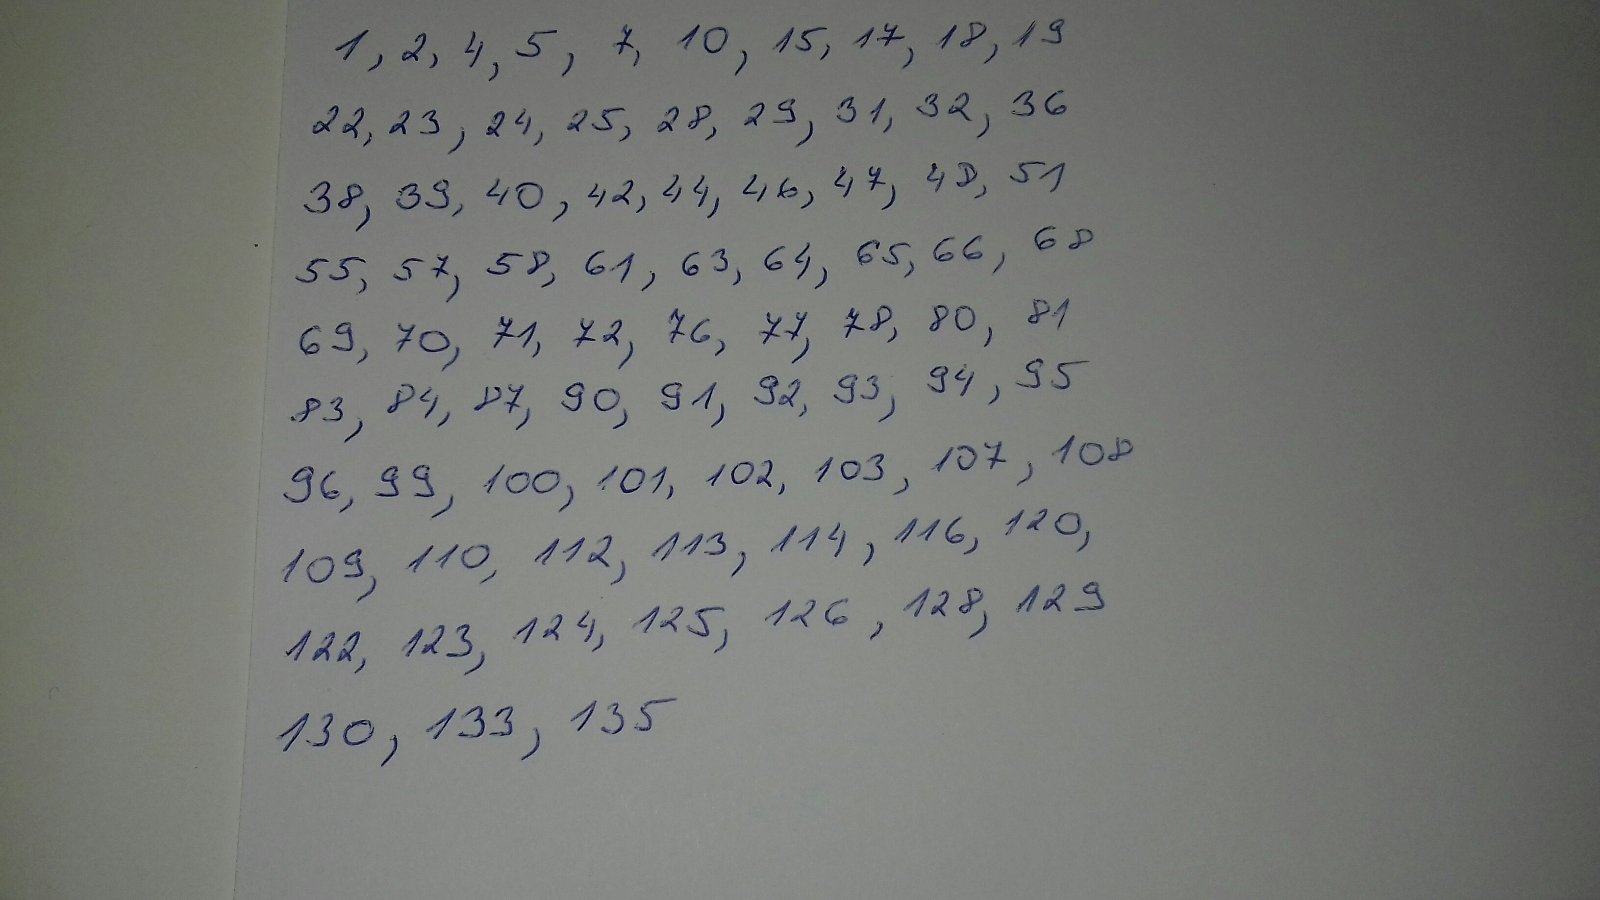 1, 2, 4, 5, 7, 10, 15, 17, 18, 19
22, 23, 24, 25, 28, 29, 31, 32, 36
38, 39, 40, 42, 44, 46, 47, 48, 51
55, 57, 58, 61, 63, 64, 65, 66, 68
69, 70, 71, 72, 76, 77, 78, 80, 81
83, 84, 87, 90, 91, 92, 93, 94, 95
96, 99, 100, 101, 102, 103, 107, 108
109, 110, 112, 113, 114, 116, 120,
122, 123, 124, 125, 126, 128, 129
130, 133, 135